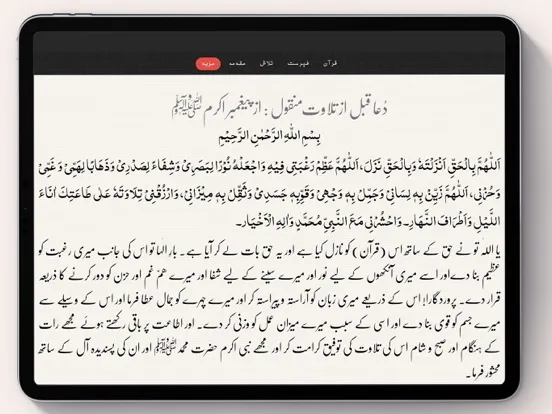 قرآن فہرست تلاش مقدمہ مزید
دُعا قبل از تلاوت منقول : از پیغمبر اکرم ﷺ
بِسْمِ اللهِ الرَّحْمٰنِ الرَّحِيْمِ
اَللّٰهُمَّ بِالْحَقِّ اَنْزَلْتَهٗ وَبِالْحَقِّ نَزَلَ، اَللّٰهُمَّ عَظِّمْ رَغْبَتِىْ فِيْهِ وَاجْعَلْهُ نُوْرًا لِبَصَرِىْ وَشِفَاءً لِصَدْرِىْ وَذَهَابًا لِهَمِّىْ وَ غَمِّىْ
وَحُزْنِىْ، اَللّٰهُمَّ زَيِّنْ بِهٖ لِسَانِىْ وَجَمِّلْ بِهٖ وَجْهِىْ وَقَوِّبِهٖ جَسَدِىْ وَثَقِّلْ بِهٖ مِيْزَانِىْ، وَارْزُقْنِىْ تِلَاوَتَهٗ عَلٰى طَاعَتِكَ اٰنَاءَ
اللَّيْلِ وَاَطْرَافَ النَّهَارِ۔ وَاحْشُرْنِىْ مَعَ النَّبِىِّ مُحَمَّدٍ وَاٰلِهِ الْاَخْيَارِ۔
یا اللہ تو نے حق کے ساتھ اس (قرآن) کو نازل کیا ہے اور یہ حق بات لے کر آیا ہے۔ بار الہا تو اس کی جانب میری رغبت کو
عظیم بنا دے اور اسے میری آنکھوں کے لیے نور اور میرے سینے کے لیے شفا اور میرے ھم و غم اور حزن کو دور کرنے کا ذریعہ
قرار دے۔ پروردگارا! اس کے ذریعے میری زبان کو آراستہ و پیراستہ کر اور میرے چہرے کو جمال عطا فرما اور اس کے وسیلے سے
میرے جسم کو قوی بنا دے اور اسی کے سبب میرے میزان عمل کو وزنی کر دے۔ اور اطاعت پر باقی رکھتے ہوئے مجھے رات
کے ہنگام اور صبح و شام اس کی تلاوت کی توفیق کرامت کر اور مجھے نبی اکرم حضرت محمد ﷺ اور ان کی پسندیدہ آل کے ساتھ
محشور فرما۔